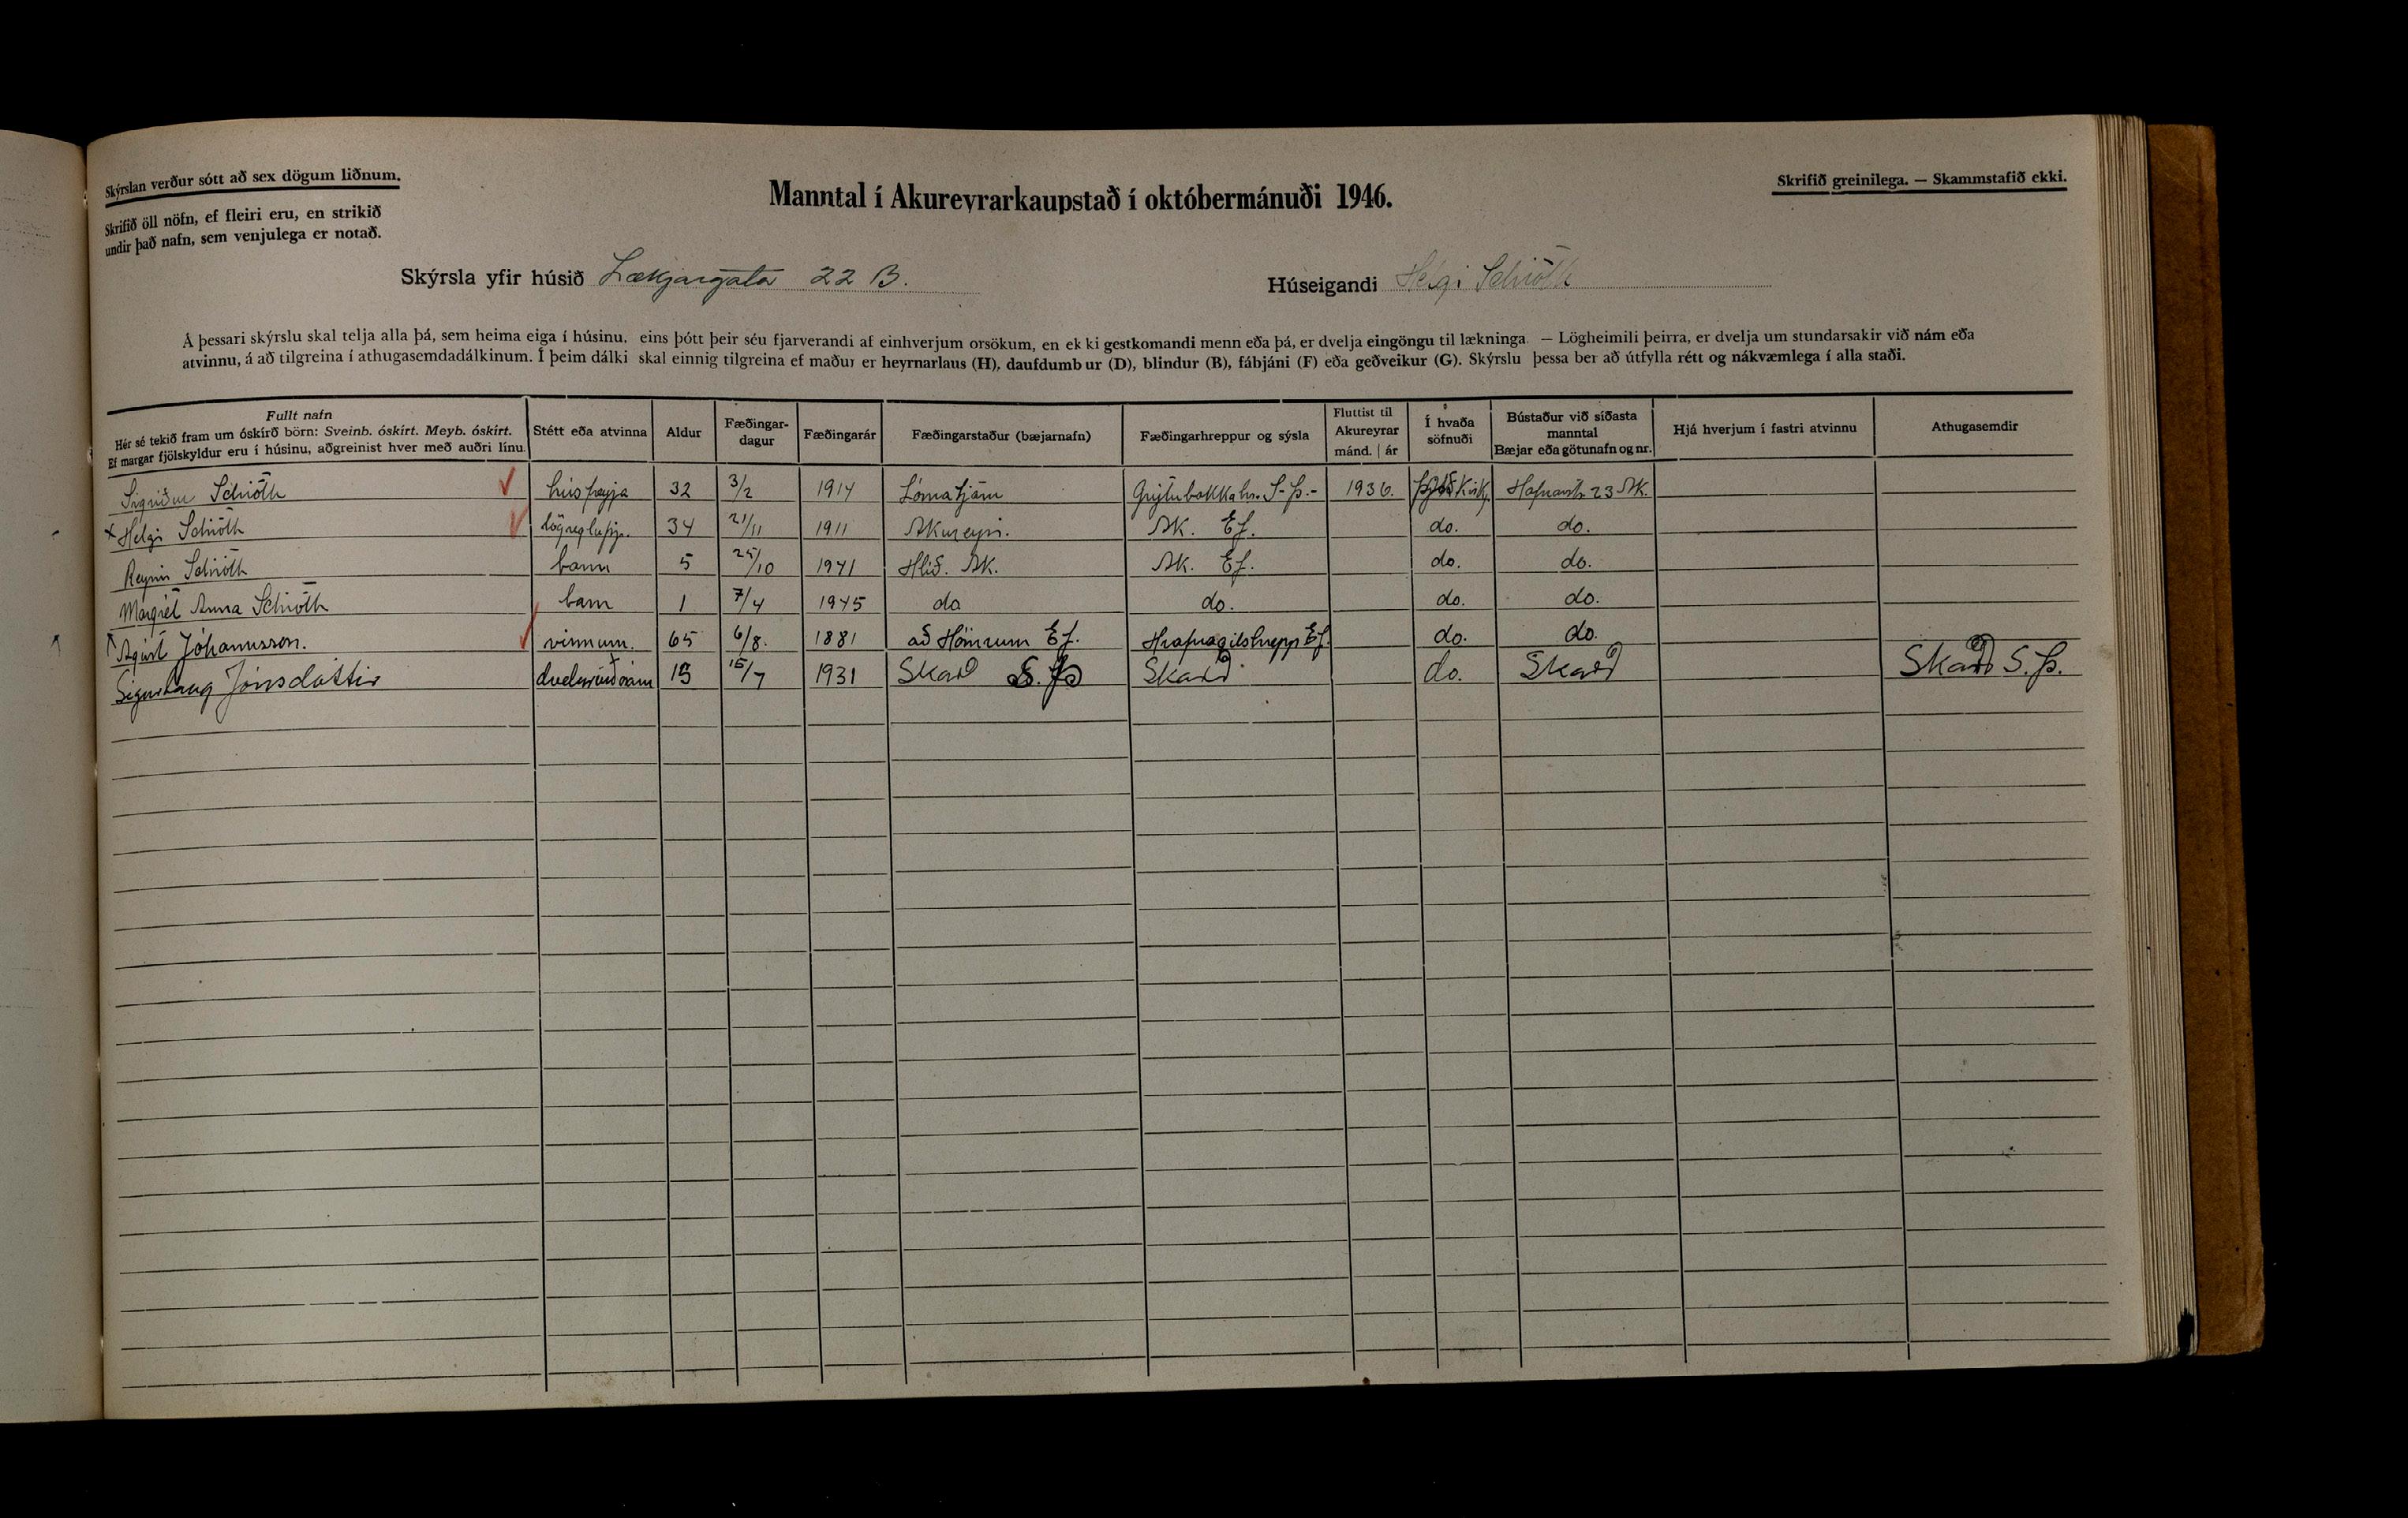 Skýrslan verður sótt að sex dögum liðnum.
Skrifið öll nöfn, ef fleiri eru, en strikið
undir það nafn, sem venjulega er notað.
Manntal í Akureyrarkaupstað í októbermánuði 1946.
Skrifið greinilega. — Skammstafið ekki.
Skýrsla yfir húsið Lækjargata 22 B.
Húseigandi Helgi Schiöth
Á þessari skýrslu skal telja alla þá, sem heima eiga í húsinu, eins þótt þeir séu fjarverandi af einhverjum orsökum, en ek ki gestkomandi menn eða þá, er dvelja eingöngu til lækninga. — Lögheimili þeirra, er dvelja um stundarsakir við nám eða
atvinnu, á að tilgreina í athugasemdadálkinum. Í þeim dálki skal einnig tilgreina ef maður er heyrnarlaus (H), daufdumb ur (D), blindur (B), fábjáni (F) eða geðveikur (G). Skýrslu þessa ber að útfylla rétt og nákvæmlega í alla staði.
Fullt nafn
Hér sé tekið fram um óskírð börn: Sveinb. óskírt. Meyb. óskírt.
Ef margar fjölskyldur eru í húsinu, aðgreinist hver með auðri línu.
Stétt eða atvinna
Aldur
Fæðingar-
dagur
Fæðingarár
Fæðingarstaður (bæjarnafn)
Fæðingarhreppur og sýsla
Fluttist til
Akureyrar
mánd. | ár
Í hvaða
söfnuði
Bústaður við síðasta
manntal
Bæjar eða götunafn og nr.
Hjá hverjum í fastri atvinnu
Athugasemdir
Sigriður Schiöth húsfreyja 32 3/2 1914 Lómatjörn Grýtubakkahr. S-Þ.- 1936. Kirkj. Hafnarstr. 23 Ak.
x Helgi Schiöth lögregluþj. 34 21/11 1911 Akureyri. Ak. Ef. do. do.
Reynir Schiöth barn 5 25/10 1941 Hlíð. Ak. Ak. Ef. do. do.
Margrét Anna Schiöth barn 1 7/4 1945 do do. do. do.
Ágúst Jóhannsson. vinnum. 65 6/8. 1881 að Hömrum Ef. Hrafnagilshrepp Ef. do. do.
Sigurlaug Jónsdóttir dvelur við nám 15 15/7 1931 Skarð S. Þ Skarð do. Skarð Skarð S. Þ.